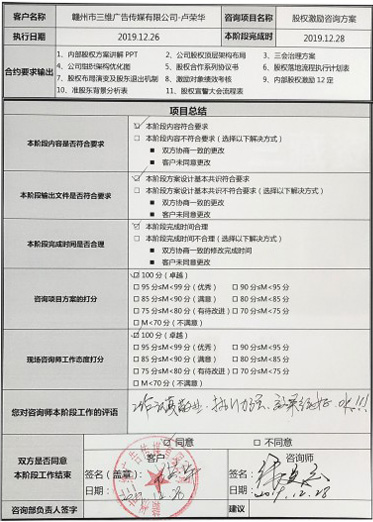 客户名称 赣州市三维广告传媒有限公司-卢荣华 咨询项目名称 股权激励咨询方案
执行日期 2019.12.26 本阶段完成时 2019.12.28
合约要求输出
1、内部股权方案讲解 PPT 2、公司股权顶层架构布局 3、三会治理方案
4、公司组织架构优化图 5、股权合作系列协议书 6、股权落地流程执行计划表
7、股权布局演变及股东退出机制 8、激励对象绩效考核 9、内部股权激励 12 定
10、准股东背景分析表 11、股权宣誓大会流程表
项目总结
本阶段内容是否符合要求
本阶段内容符合要求
□ 本阶段内容不符合要求（选择以下解决方式）
■ 双方协商一致的更改
■ 客户未同意更改
本阶段输出文件是否符合要求
本阶段方案设计基本共识符合要求
□ 本阶段方案设计基本共识不符合要求（选择以下解决方式）
■ 双方协商一致的更改
■ 客户未同意更改
本阶段完成时间是否合理
本阶段完成时间合理
□ 本阶段完成时间不合理（选择以下解决方式）
■ 双方协商一致的修改完成时间
■ 客户未同意更改
咨询项目方案的打分
100 分（卓越）
□ 95 分≤M<99 分（优秀） □ 90 分≤M<95 分
□ 85 分≤M<90 分（满意） □ 80 分≤M<85 分
□ 75 分≤M<80 分（有待改进） □ 70 分≤M<75 分
□ M<70 分（不满意）
现场咨询师工作态度打分
100 分（卓越）
□ 95 分≤M<99 分（优秀） □ 90 分≤M<95 分
□ 85 分≤M<90 分（满意） □ 80 分≤M<85 分
□ 75 分≤M<80 分（有待改进） □ 70 分≤M<75 分
□ M<70 分（不满意）
您对咨询师本阶段工作的评语
双方是否同意
本阶段工作结束
同意 □ 不同意
客户 咨询师
签名（盖章）： 签名：
日期： 日期： 2019.12.28
咨询部负责人签字 建议